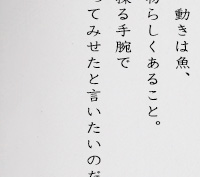 動きは魚、
らしくあること。
る手腕で
ってみせたと言いたいのだ